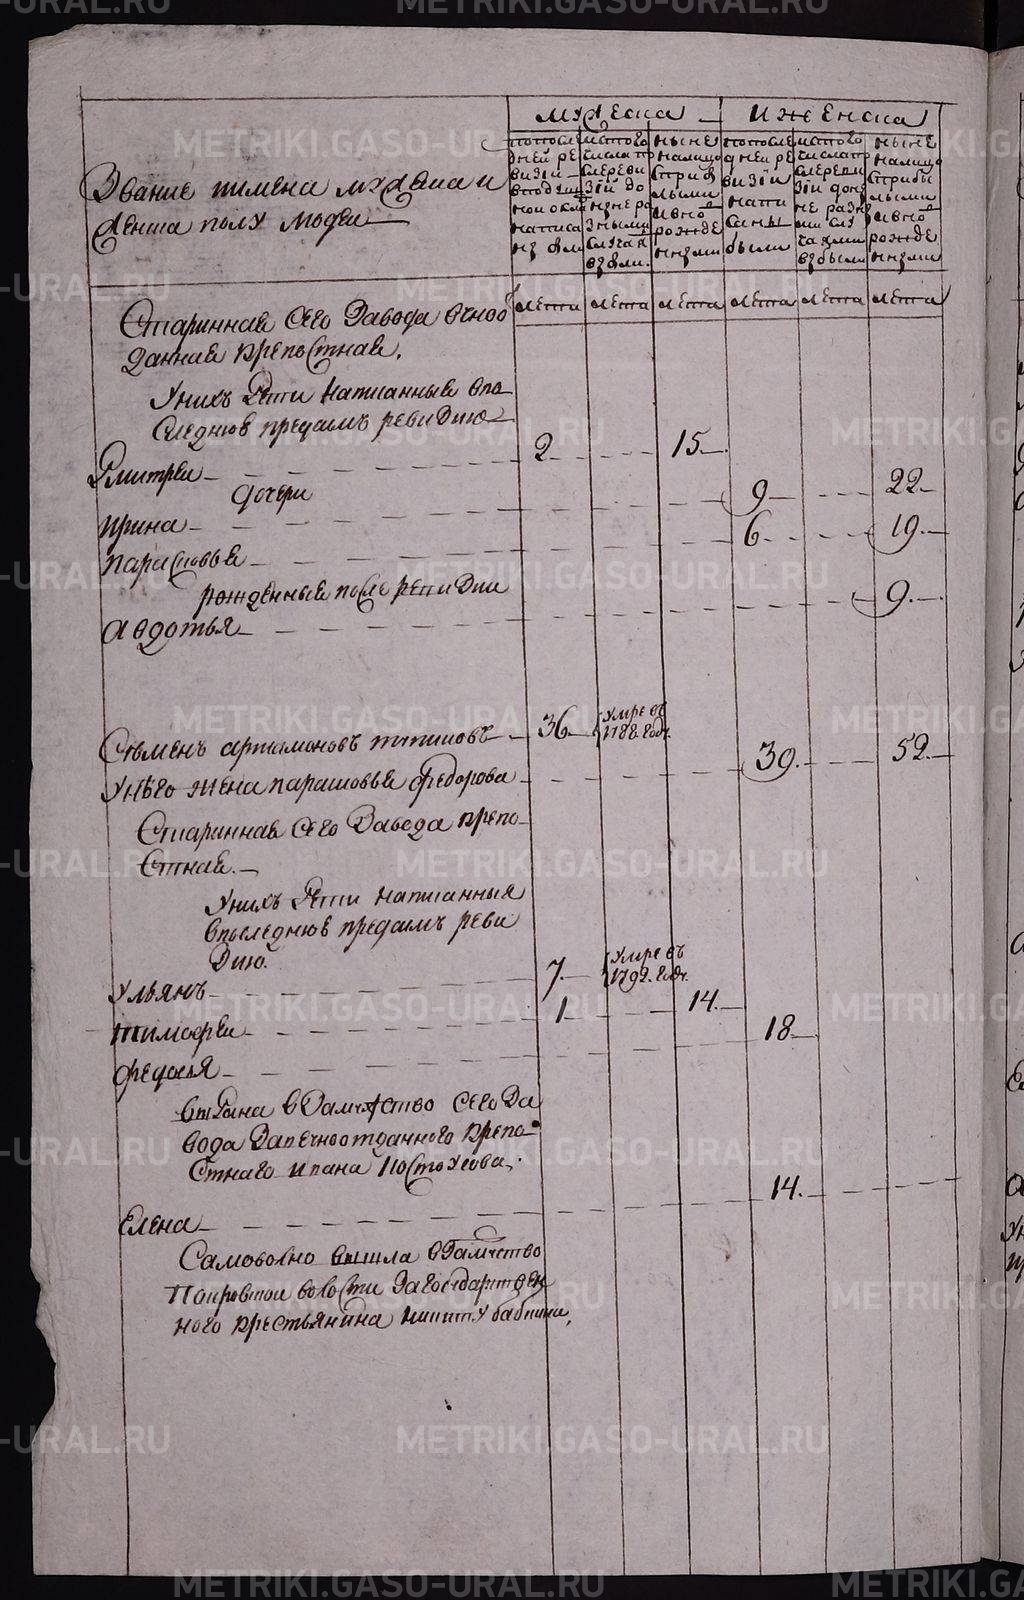 мужеска
и женска
Звание и имена мужеска и
женска полу людеи
по после
дней ре
визии
в подуш
ной окла
написа
ны были
из того
числа по
сле реви
зии до
ныне ра
зными
случая
ныне
на лицо
с прибы
лыми
и вно
рожде
нными
по после
дней ре
визии
напи
саны
были
из того
числа по
сле реви
зии до
не разн
ми слу
чаями
выбыли
ныне
на лицо
с прибы
лыми
и вно
рожде
нными
лета лета лета лета лета лета
Старинная сего завода вечноо
данная крепостная.
У них дети написанныя в по
следнюю пред сим ревизию
Дмитреи 2 15
дочери
Ирина 9 22
Парасковья 6 19
рожденныя после ревизии
Авдотья 9
Семен Артамонов Титов 36 умре в
1788. годе.
У него жена Парасковья Федорова 39. 52
Старинная сего завода крепо
стная.
У них дети написанныя
в последнюю пред сим реви
зию.
Ульян 7. умре в
1792. годе.
Тимофеи 1 14.
Федосья 18
выдана в замужство сего за
вода за вечноотданного крепо
стнаго Ивана
Елена 14.
Самовольно вышла в замужство
Покровской волости за государствен
ного крестьянина Никиту Бабкина,
METRIKI.GASO-URAL.RU